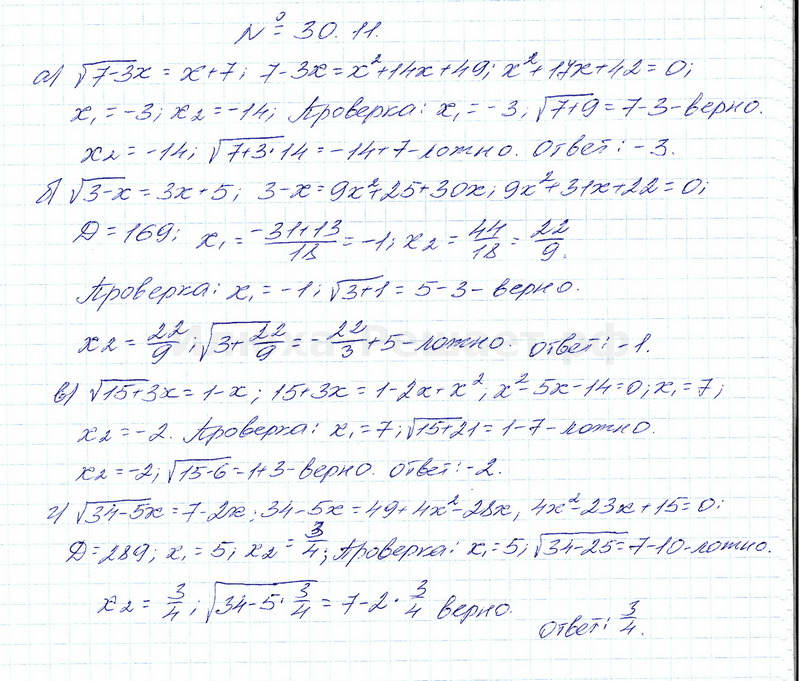 № 30.11.
а) √7-3x = x+7; 7-3x = x²+14x+49; x²+17x+42=0;
x₁=-3; x₂=-14; Проверка: x₁=-3; √7+9 = 7-3 - верно.
x₂=-14; √7+3·14 = -14+7 - ложно. Ответ: -3.
б) √3-x = 3x+5; 3-x=9x²+25+30x; 9x²+31x+22=0;
D=169; x₁=(-31+13)/18=-1; x₂=44/18=22/9.
Проверка: x₁=-1; √3+1 = 5-3 - верно.
x₂=22/9; √3+22/9 = -22/3+5 - ложно. Ответ: -1.
в) √15+3x = 1-x; 15+3x=1-2x+x²; x²-5x-14=0; x₁=7;
x₂=-2. Проверка: x₁=7; √15+21 = 1-7 - ложно.
x₂=-2; √15-6 = 1+3 - верно. Ответ: -2.
г) √34-5x = 7-2x; 34-5x=49+4x²-28x, 4x²-23x+15=0;
D=289; x₁=5; x₂=3/4; Проверка: x₁=5; √34-25 = 7-10 - ложно.
x₂=3/4; √34-5·3/4 = 7-2·3/4 верно.
Ответ: 3/4.